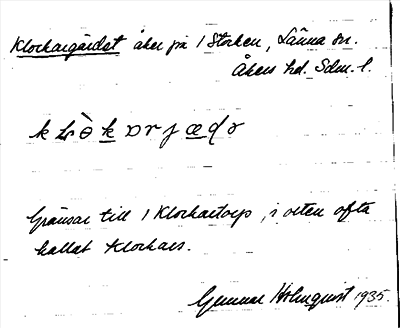 Klockargärdet åker på 1 Storken, Länna sn.
Åkers hd. Sdm. l.
Gränsar till 1 Klockartorp, i orten ofta
kallat Klockars.
Gunnar Holmquist 1935.